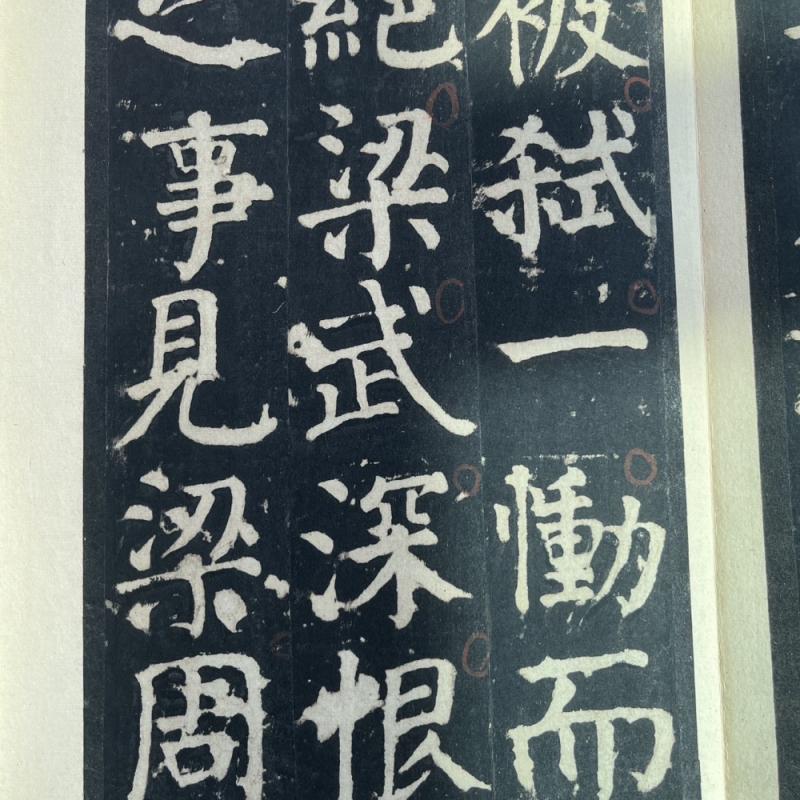 被弑一慟而
絶梁武深恨
之事見梁周